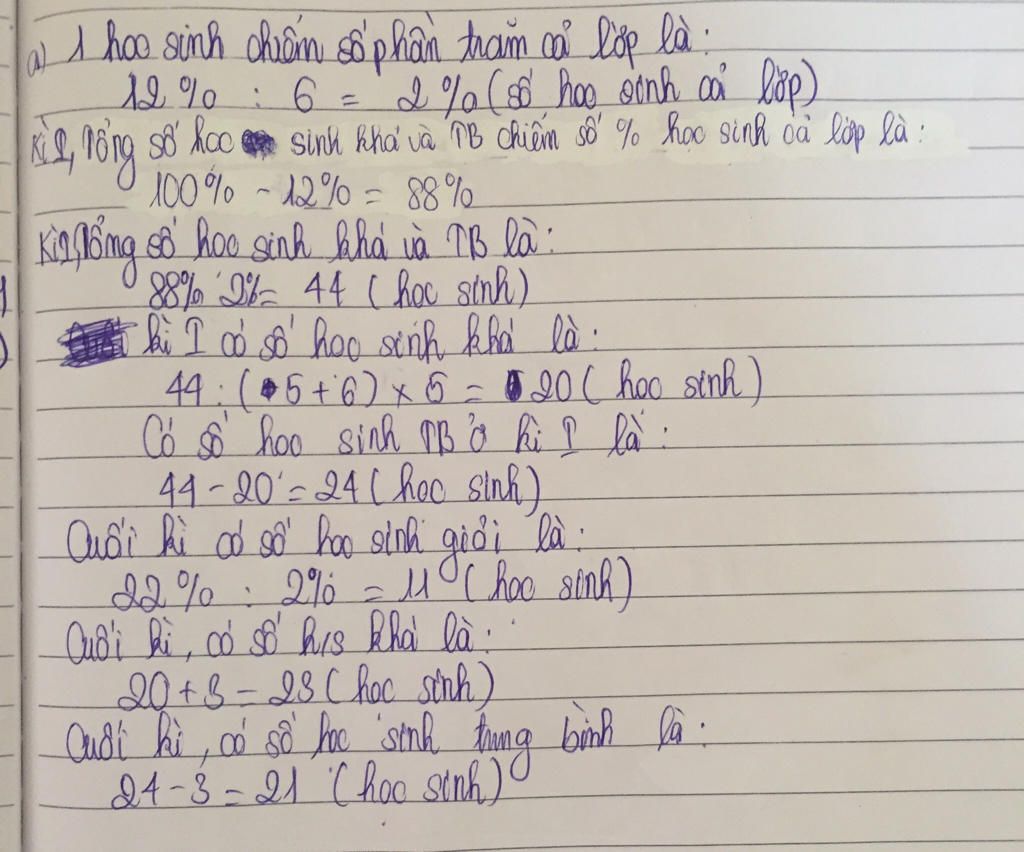 a) 1 học sinh chiếm số phần trăm cả lớp là:
12% : 6 = 2% (số học sinh cả lớp)
Kì I, Tổng số học sinh khá và TB chiếm số % học sinh cả lớp là:
100% - 12% = 88%
Kì I, Tổng số học sinh khá và TB là:
88% : 2% = 44 (học sinh)
kì I có số học sinh khá là:
44 : (5 + 6) x 5 = 20 (học sinh)
Có số học sinh TB ở kì I là:
44 - 20 = 24 (học sinh)
Cuối kì có số học sinh giỏi là:
22% : 2% = 11 (học sinh)
Cuối kì, có số h/s khá là:
20 + 3 = 23 (học sinh)
Cuối kì, có số học sinh trung bình là:
24 - 3 = 21 (học sinh)